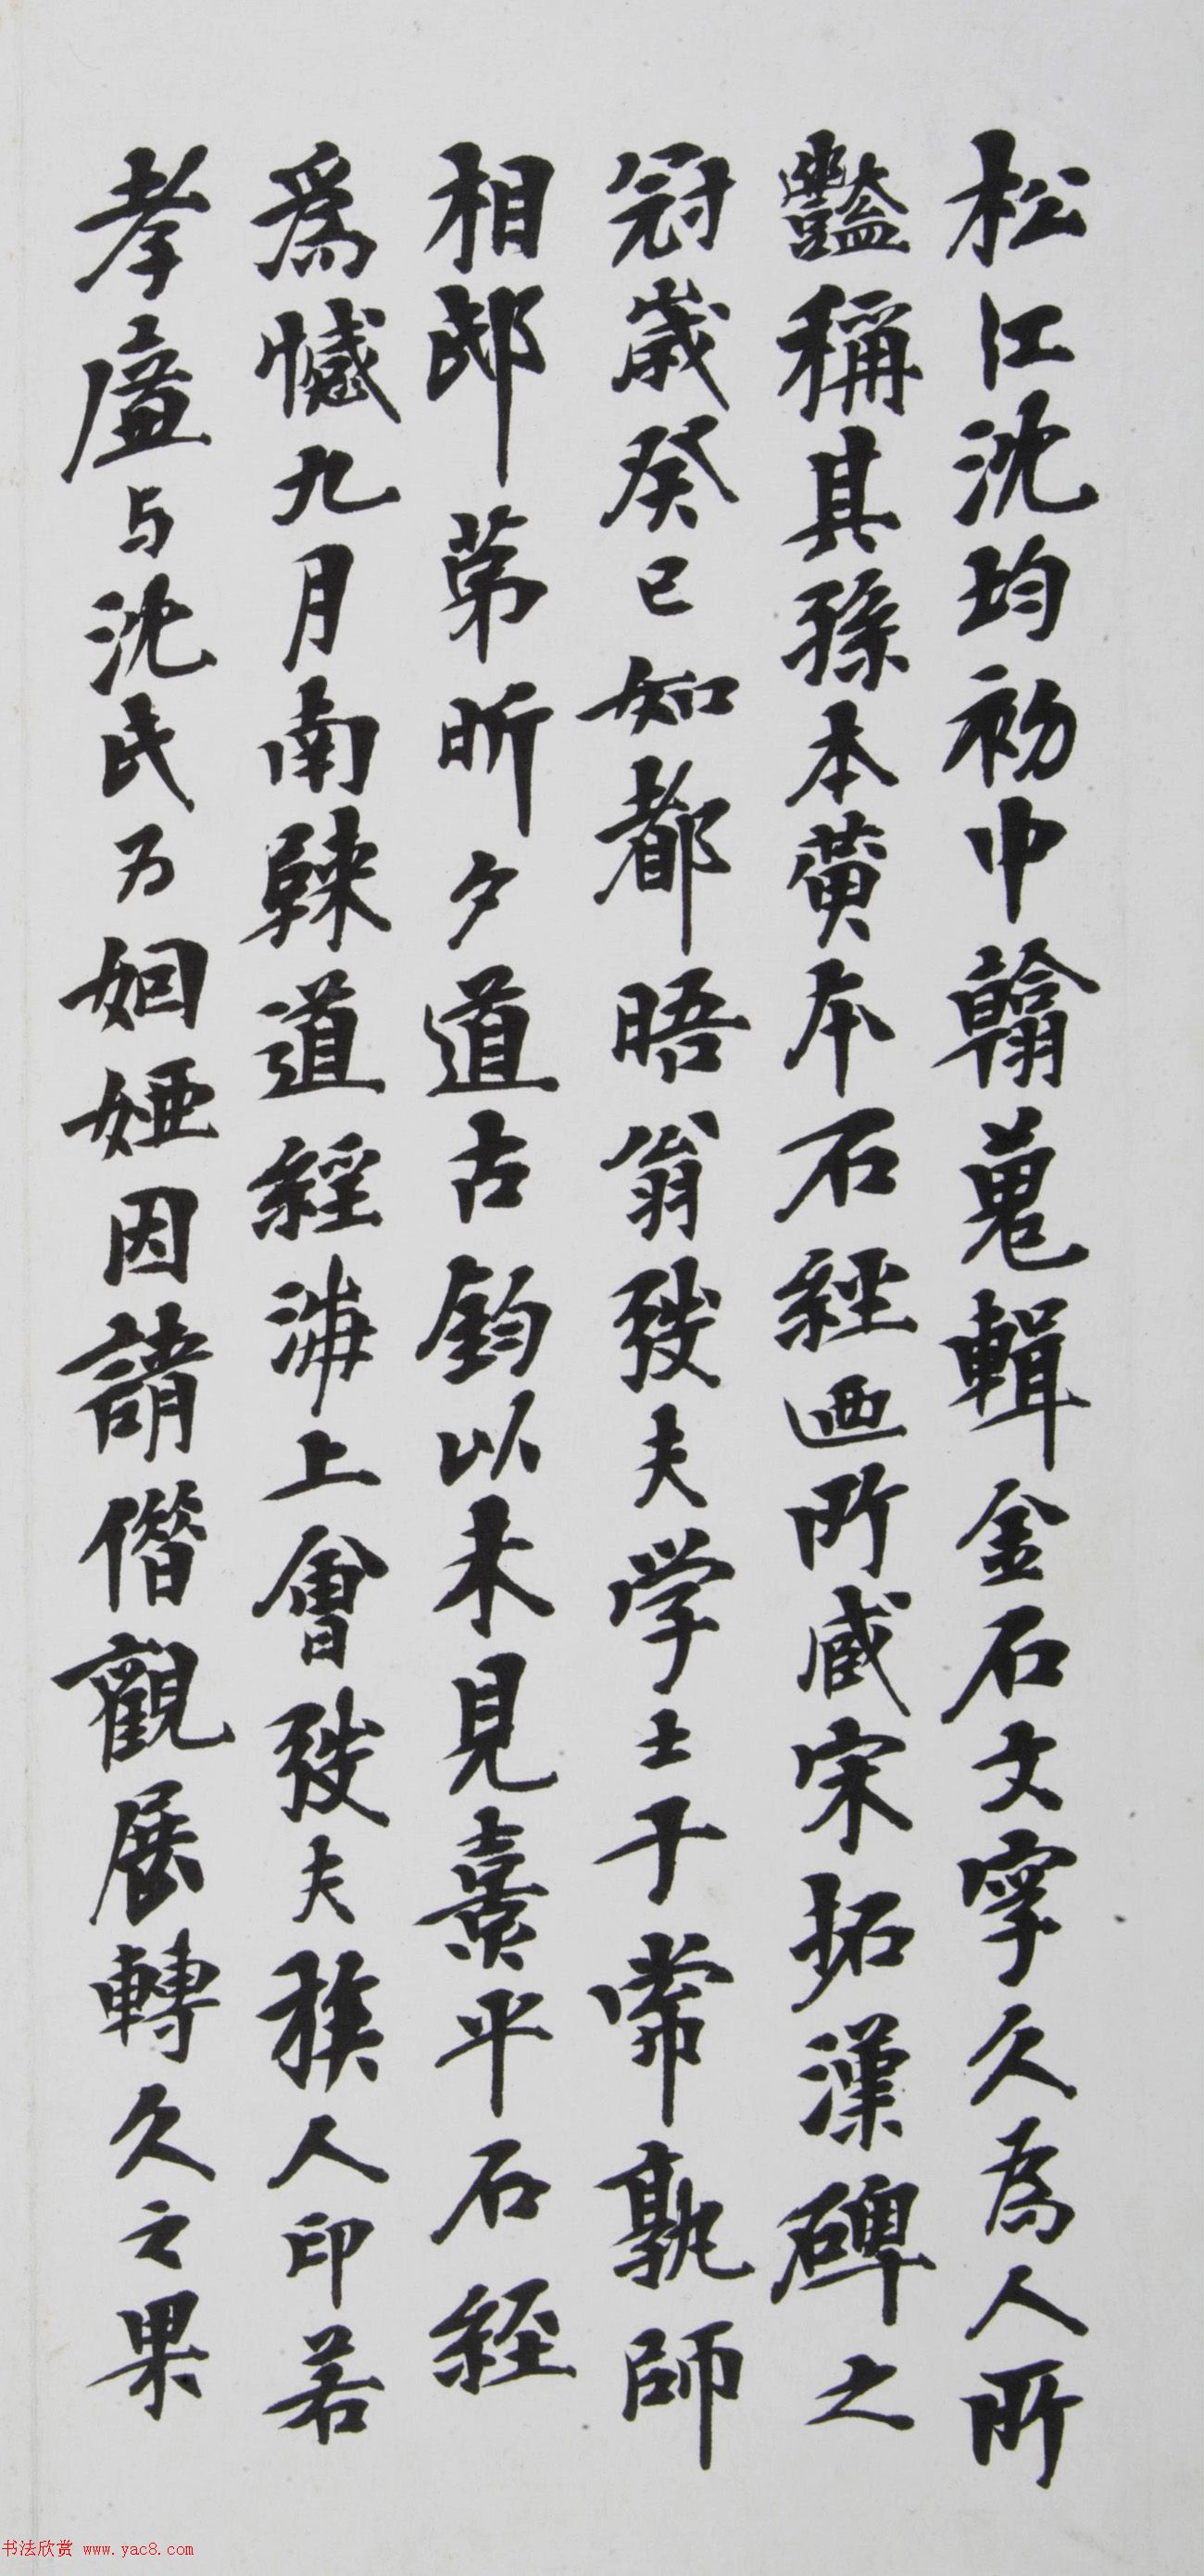 松江沈均初中翰蒐輯金石文字久為人所
豔稱其孫本黃本石經迺所臧宋拓漢碑之
冠歲癸巳知都晤翁弢夫学士于常孰師
相邸苐昕夕道古鈞以未見熹平石經
為憾九月南歸道經海上會弢夫族人印若
孝廉与沈氏为姻婭因請偕觀展轉久之果
书法欣赏 www.yac8.com